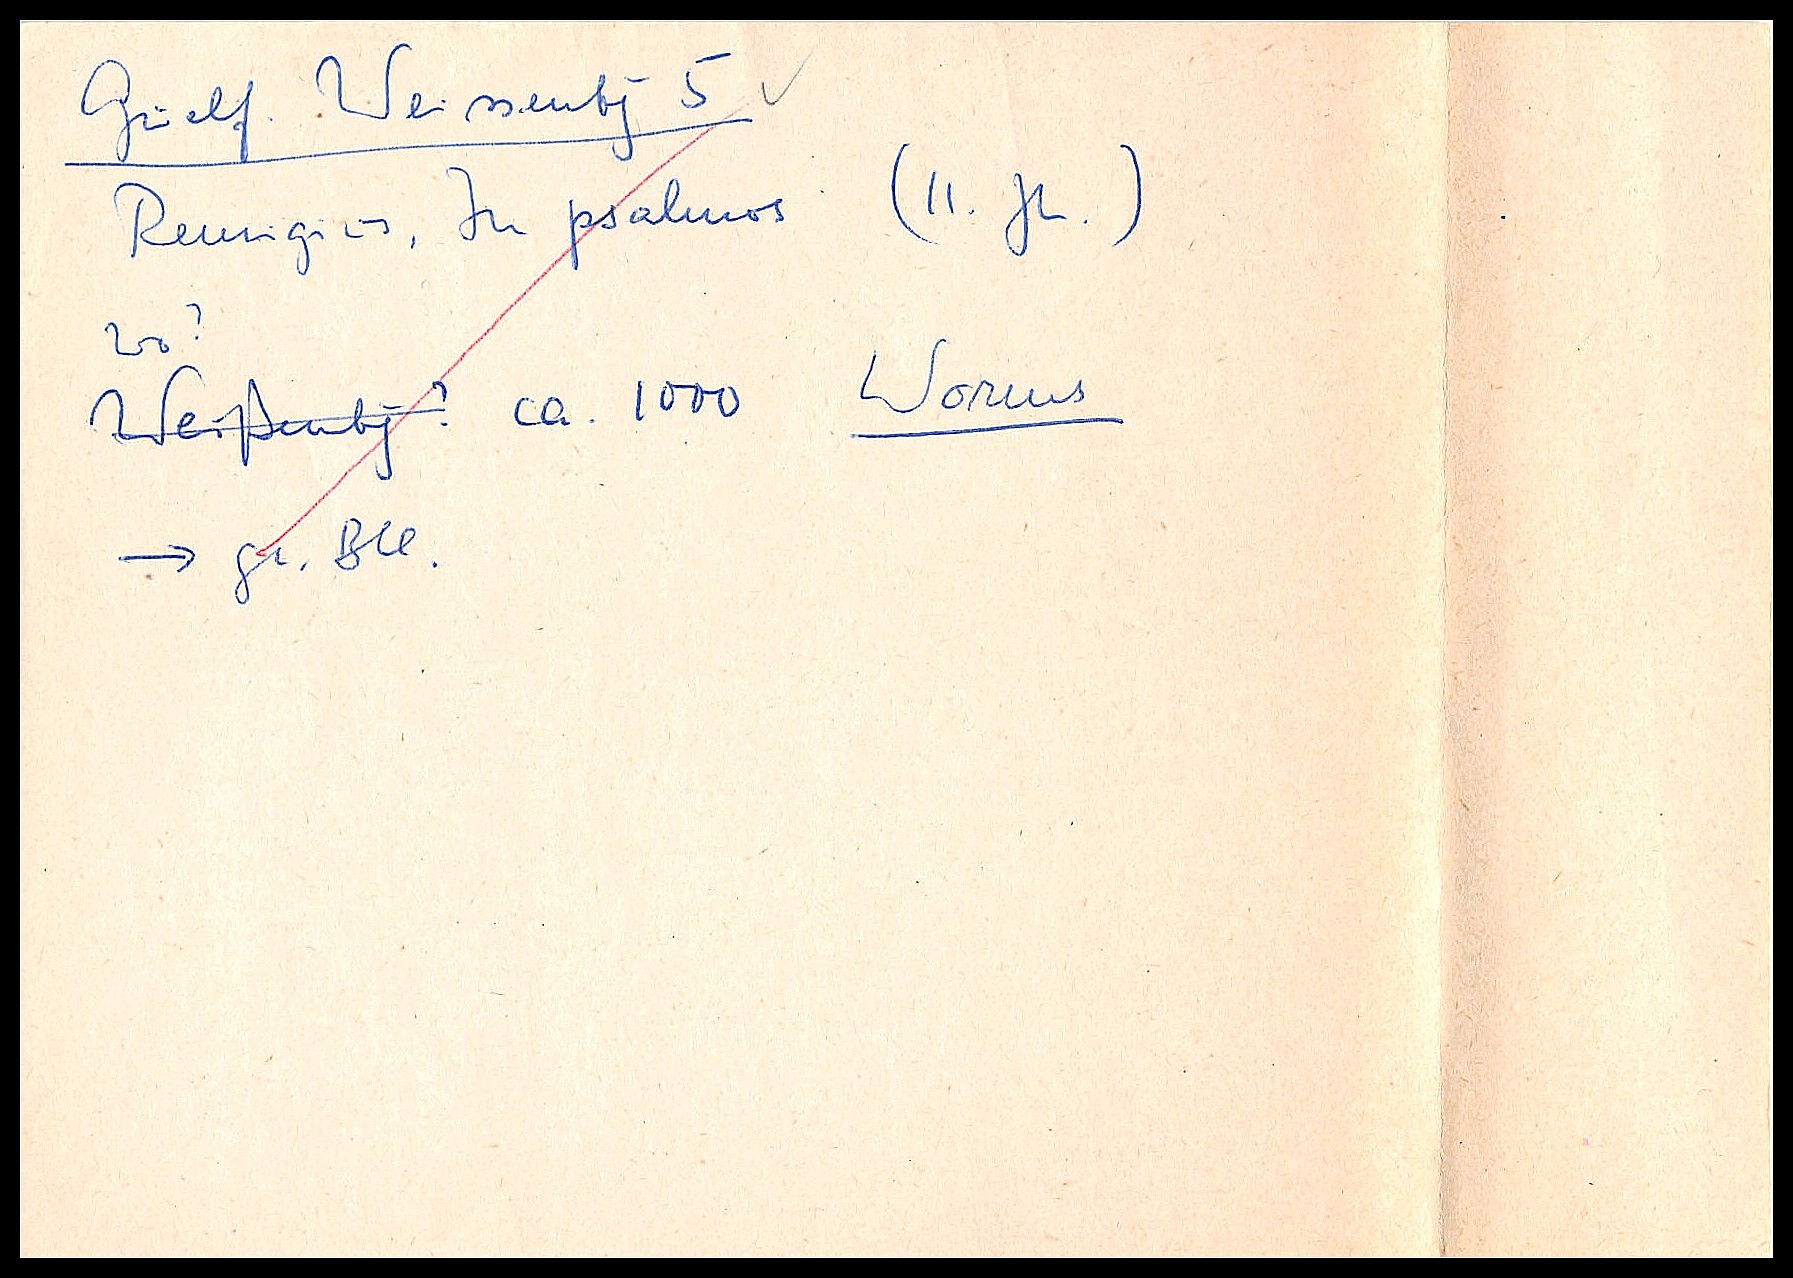 Guelf. Weissenbg 5 ✓
Remigius, In psalmos (11. Jh.)
wo?
Weißenbg? ca. 1000 Worms
→ gr. Bll.